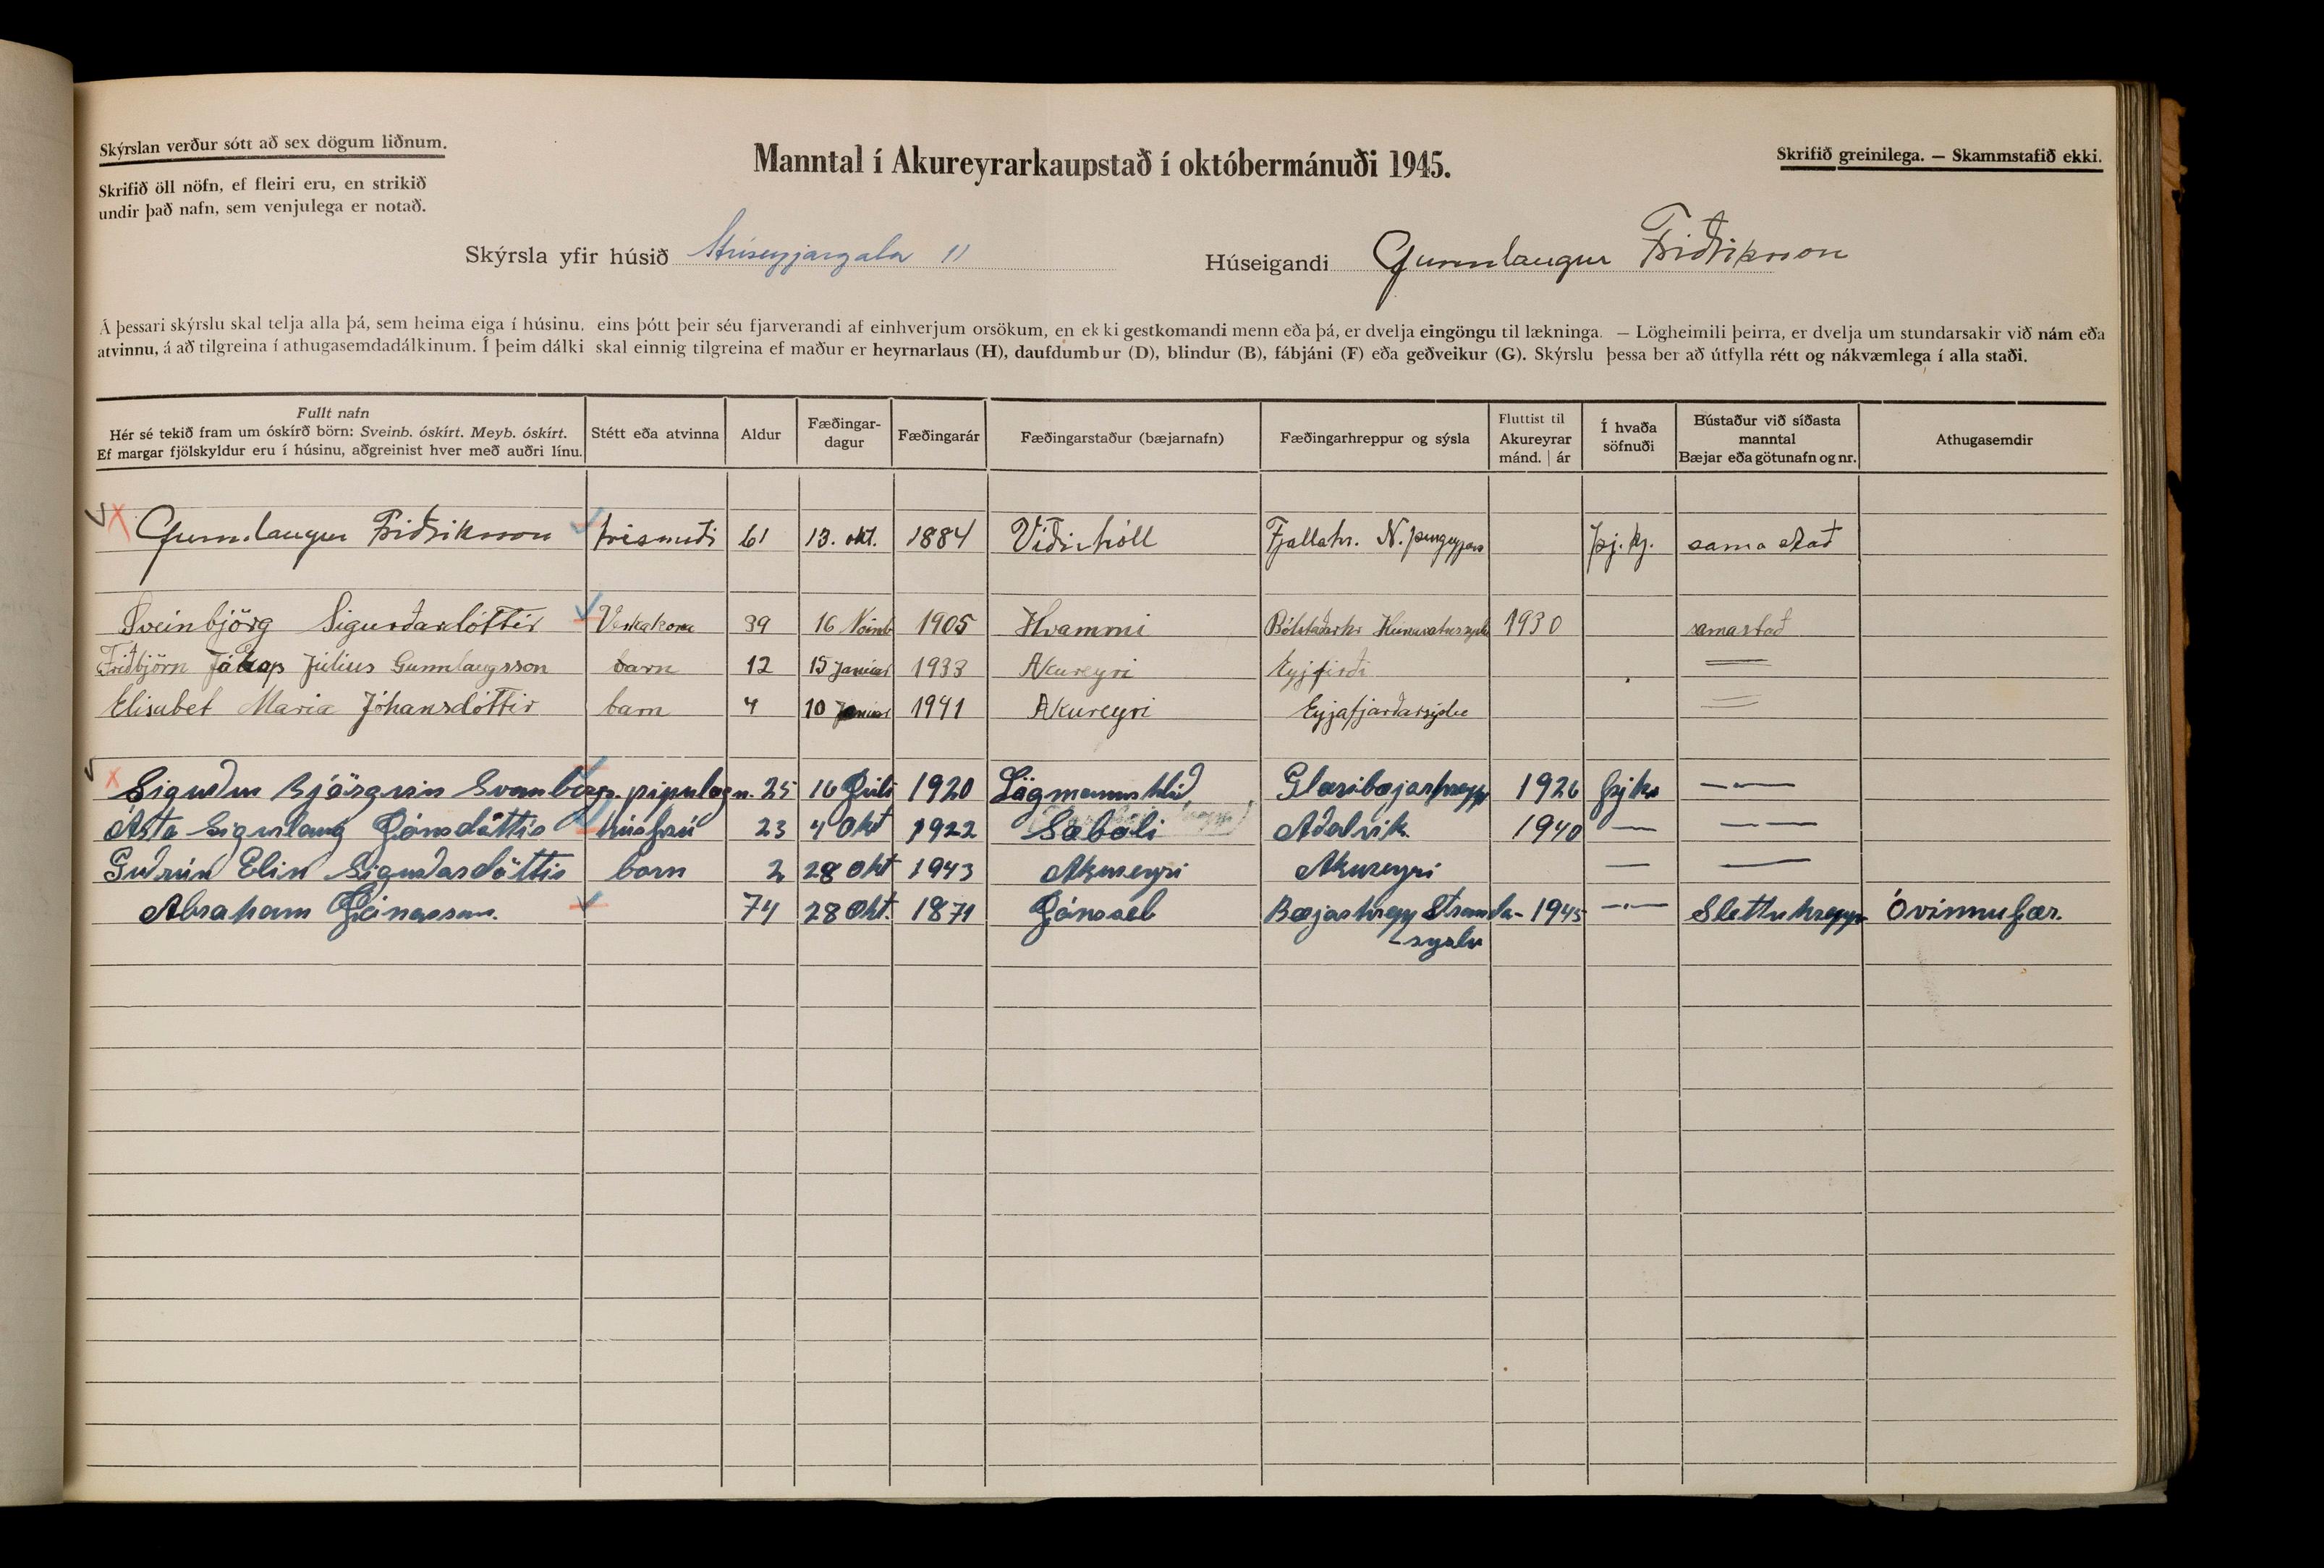 Skýrslan verður sótt að sex dögum liðnum.
Skrifið öll nöfn, ef fleiri eru, en strikið
undir það nafn, sem venjulega er notað.
Manntal í Akureyrarkaupstað í októbermánuði 1945.
Skrifið greinilega. — Skammstafið ekki.
Skýrsla yfir húsið 11
Húseigandi Gunnlaugur Friðriksson
Á þessari skýrslu skal telja alla þá, sem heima eiga í húsinu, eins þótt þeir séu fjarverandi af einhverjum orsökum, en ekki gestkomandi menn eða þá, er dvelja eingöngu til lækninga. — Lögheimili þeirra, er dvelja um stundarsakir við nám eða
atvinnu, á að tilgreina í athugasemdadálkinum. Í þeim dálki skal einnig tilgreina ef maður er heyrnarlaus (H), daufdumbur (D), blindur (B), fábjáni (F) eða geðveikur (G). Skýrslu þessa ber að útfylla rétt og nákvæmlega í alla staði.
Fullt nafn
Hér sé tekið fram um óskírð börn: Sveinb. óskírt. Meyb. óskírt.
Ef margar fjölskyldur eru í húsinu, aðgreinist hver með auðri línu.
Stétt eða atvinna
Aldur
Fæðingar-
dagur
Fæðingarár
Fæðingarstaður (bæjarnafn)
Fæðingarhreppur og sýsla
Fluttist til
Akureyrar
mánd. | ár
Í hvaða
söfnuði
Bústaður við síðasta
manntal
Bæjar eða götunafn og nr.
Athugasemdir
Gunnlaugur Friðriksson 61 13. okt. 1884 Víðirhóll Fjallahr. N. Þj.kj. sama stað
Sveinbjörg Sigurðardóttir Verkakona 39 16 1905 Hvammi 1930 samastað
Friðbjörn Jákop Júlíus Gunnlaugsson barn 12 15 Janúar 1933 Akureyri
Elisabet Maria Jóhansdóttir barn 4 10 Januar 1941 Akureyri Eyjafjarðarsýslu
Björgvin Svanberg 25 16 Júli 1920 Lögmannshlíð Glæsibæjarhrepp 1926 —„—
Ásta Sigurlaug Jónsdóttir húsfrú 23 4 Okt 1922 Sæboli Aðalvik 1940 — — —
Guðrún Elin Sigurðardóttir barn 2 28 Okt 1943 Akureyri Akureyri — —
Abraham 74 28 Okt. 1871 Jónssel Bæjarhrepp Stranda- 1945 —„— Sléttuhrepp Óvinnufær.
syslu